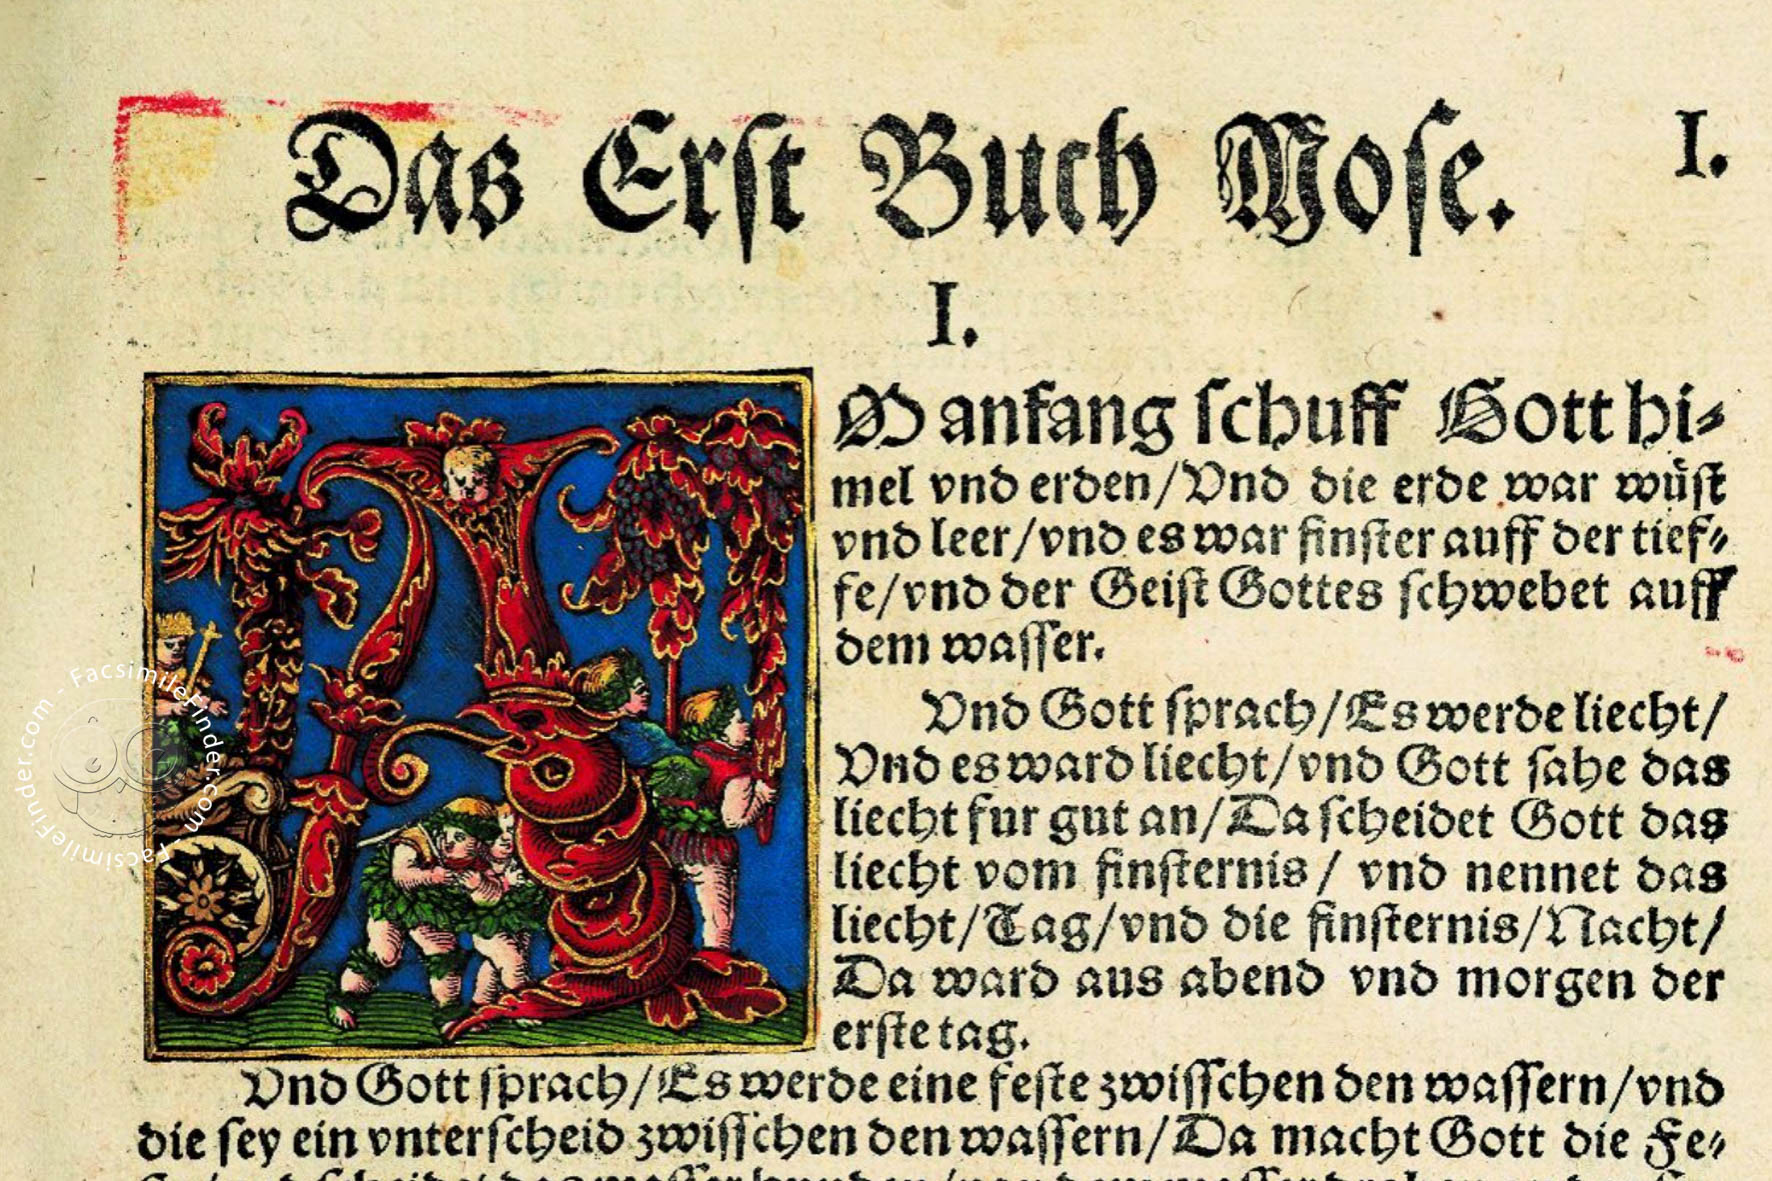 Das Erst Buch Mose.
I.
I.
AM anfang schuff Gott hi⸗
mel vnd erden/Vnd die erde war wüst
vnd leer/vnd es war finster auff der tief⸗
fe/vnd der Geist Gottes schwebet auff
dem wasser.
Vnd Gott sprach/Es werde liecht/
Vnd es ward liecht/vnd Gott sahe das
liecht fur gut an/Da scheidet Gott das
liecht vom finsternis/ vnd nennet das
liecht/Tag/vnd die finsternis/Nacht/
Da ward aus abend vnd morgen der
erste tag.
Vnd Gott sprach/Es werde eine feste zwisschen den wassern/vnd
die sey ein vnterscheid zwisschen den wassern/Da macht Gott die Fe⸗
FacsimileFinder.com - FacsimileFinder.com - FacsimileFinder.com